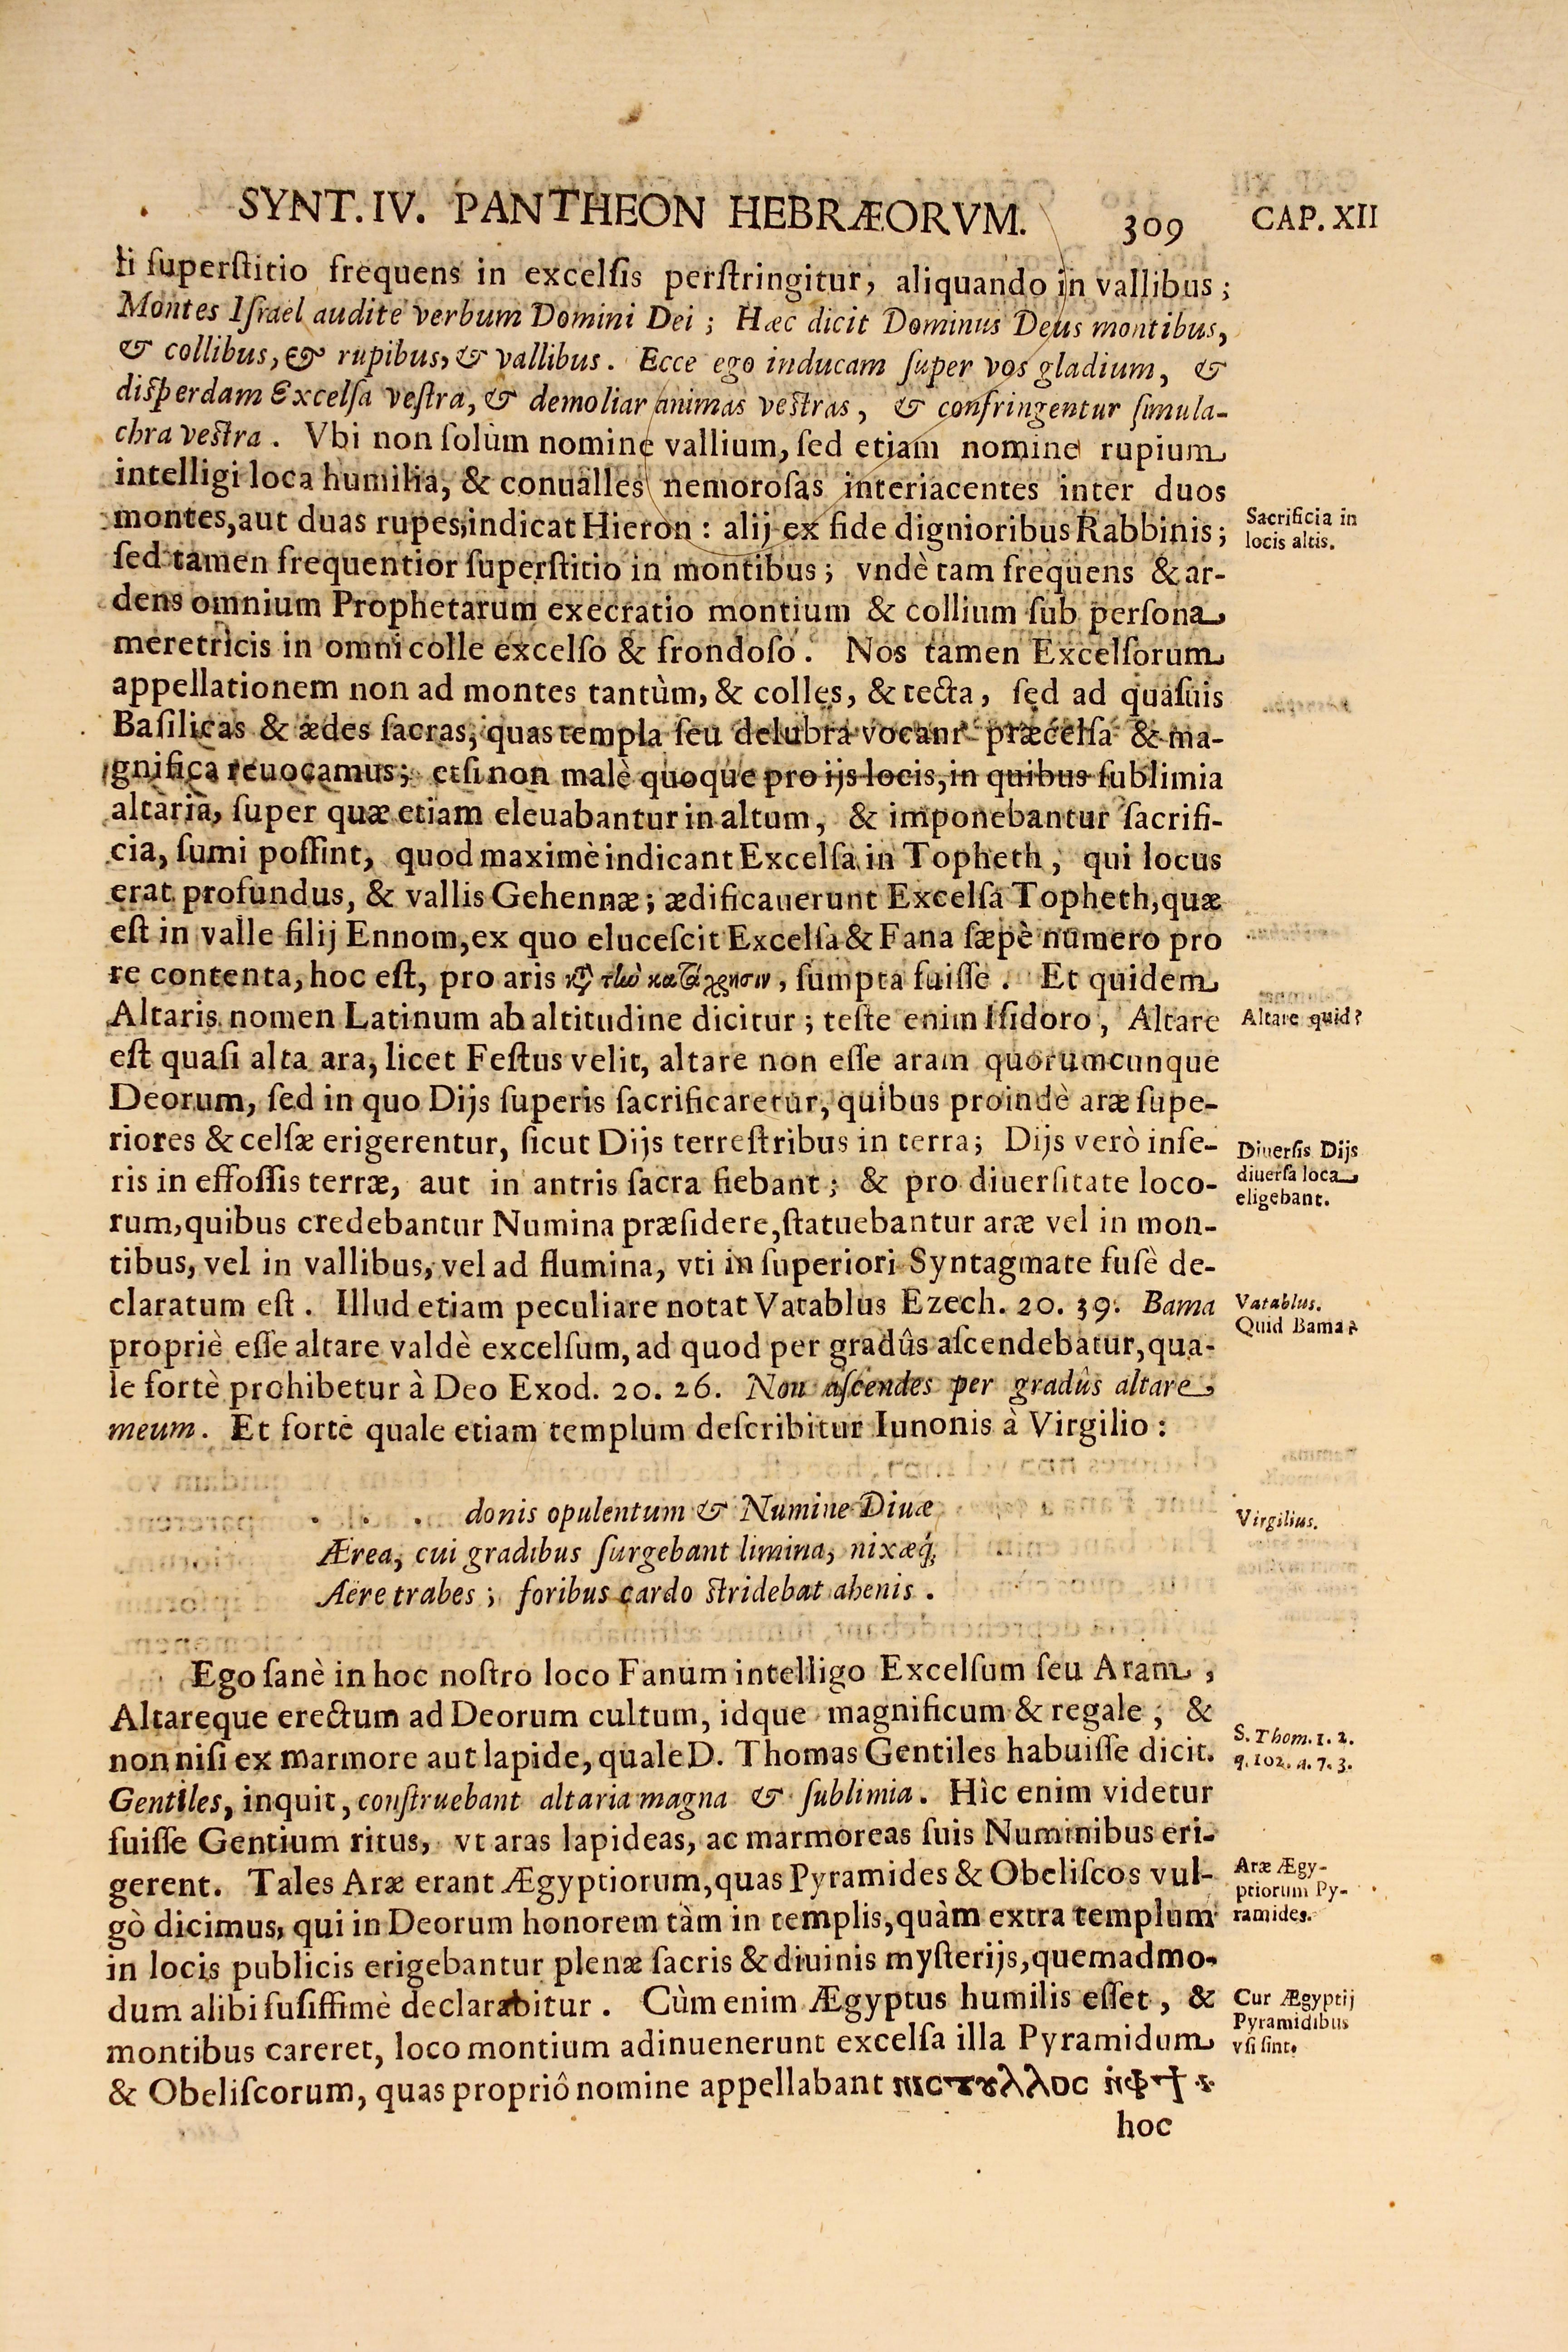 SYNT. IV. PANTHEON HEBRÆORVM. 309 CAP. XII
ti ſuperſtitio frequens in excelſis perſtringitur, aliquando in vallibus;
Montes Iſrael audite verbum Domini Dei; Hæc dicit Dominus Deus montibus,
& collibus, & rupibus, & vallibus. Ecce ego inducam ſuper vos gladium, &
diſperdam Excelſa veſtra, & demoliar animas veſtras, & confringentur ſimula-
chra veſtra. Vbi non ſolùm nomine vallium, ſed etiam nomine rupium
intelligi loca humilia, & conualles nemoroſas interiacentes inter duos
montes, aut duas rupes, indicat Hieron: alij ex fide dignioribus Rabbinis;
Sacrificia in
locis altis.
ſed tamen frequentior ſuperſtitio in montibus; vndè tam frequens & ar-
dens omnium Prophetarum execratio montium & collium ſub perſona
meretricis in omni colle excelſo & frondoſo. Nos tamen Excelſorum
appellationem non ad montes tantùm, & colles, & tecta, ſed ad quaſuis
Baſilicas & ædes ſacras, quas templa ſeu delubra vocant præcelſa & ma-
gnifica reuocamus; etſi non malè quoque pro ijs locis, in quibus ſublimia
altaria, ſuper quæ etiam eleuabantur in altum, & imponebantur ſacrifi-
cia, ſumi poſſint, quod maximè indicant Excelſa in Topheth, qui locus
erat profundus, & vallis Gehennæ; ædificauerunt Excelſa Topheth, quæ
eſt in valle filij Ennom, ex quo eluceſcit Excelſa & Fana ſæpè numero pro
re contenta, hoc eſt, pro aris κατὰ τὴν κατάχρησιν, ſumpta fuiſſe. Et quidem
Altaris nomen Latinum ab altitudine dicitur; teſte enim Iſidoro, Altare
Altare quid?
eſt quaſi alta ara, licet Feſtus velit, altare non eſſe aram quorumcunque
Deorum, ſed in quo Dijs ſuperis ſacrificaretur, quibus proindè aræ ſupe-
riores & celſæ erigerentur, ſicut Dijs terreſtribus in terra; Dijs verò infe-
ris in effoſſis terræ, aut in antris ſacra fiebant; & pro diuerſitate loco-
Diuerſis Dijs
diuerſa loca
eligebant.
rum, quibus credebantur Numina præſidere, ſtatuebantur aræ vel in mon-
tibus, vel in vallibus, vel ad flumina, vti in ſuperiori Syntagmate fuſè de-
claratum eſt. Illud etiam peculiare notat Vatablus Ezech. 20. 39. Bama
Vatablus.
Quid Bama?
propriè eſſe altare valdè excelſum, ad quod per gradûs aſcendebatur, qua-
le fortè prohibetur à Deo Exod. 20. 26. Non aſcendes per gradûs altare
meum. Et fortè quale etiam templum deſcribitur Iunonis à Virgilio:
. . . donis opulentum & Numine Diuæ
Virgilius.
Ærea, cui gradibus ſurgebant limina, nixæq;
Aere trabes; foribus cardo ſtridebat ahenis.
Ego ſanè in hoc noſtro loco Fanum intelligo Excelſum ſeu Aram,
Altareque erectum ad Deorum cultum, idque magnificum & regale; &
non niſi ex marmore aut lapide, quale D. Thomas Gentiles habuiſſe dicit.
S. Thom. 1. 2.
q. 102. a. 7. 3.
Gentiles, inquit, conſtruebant altaria magna & ſublimia. Hìc enim videtur
fuiſſe Gentium ritus, vt aras lapideas, ac marmoreas ſuis Numinibus eri-
gerent. Tales Aræ erant Ægyptiorum, quas Pyramides & Obeliſcos vul-
Aræ Ægy-
ptiorum Py-
ramides.
gò dicimus, qui in Deorum honorem tàm in templis, quàm extra templum
in locis publicis erigebantur plenæ ſacris & diuinis myſterijs, quemadmo-
dum alibi fuſiſſimè declarabitur. Cùm enim Ægyptus humilis eſſet, &
Cur Ægyptij
Pyramidibus
vſi ſint.
montibus careret, loco montium adinuenerunt excelſa illa Pyramidum
& Obeliſcorum, quas propriô nomine appellabant
hoc